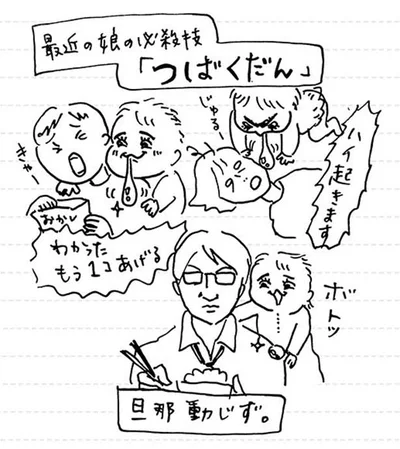 最近の娘の必殺技
「つばくだん」
きゃー
おかし
わかった
もう1コあげる
じゅる
ハイ起きます
ボトッ
旦那動じず。